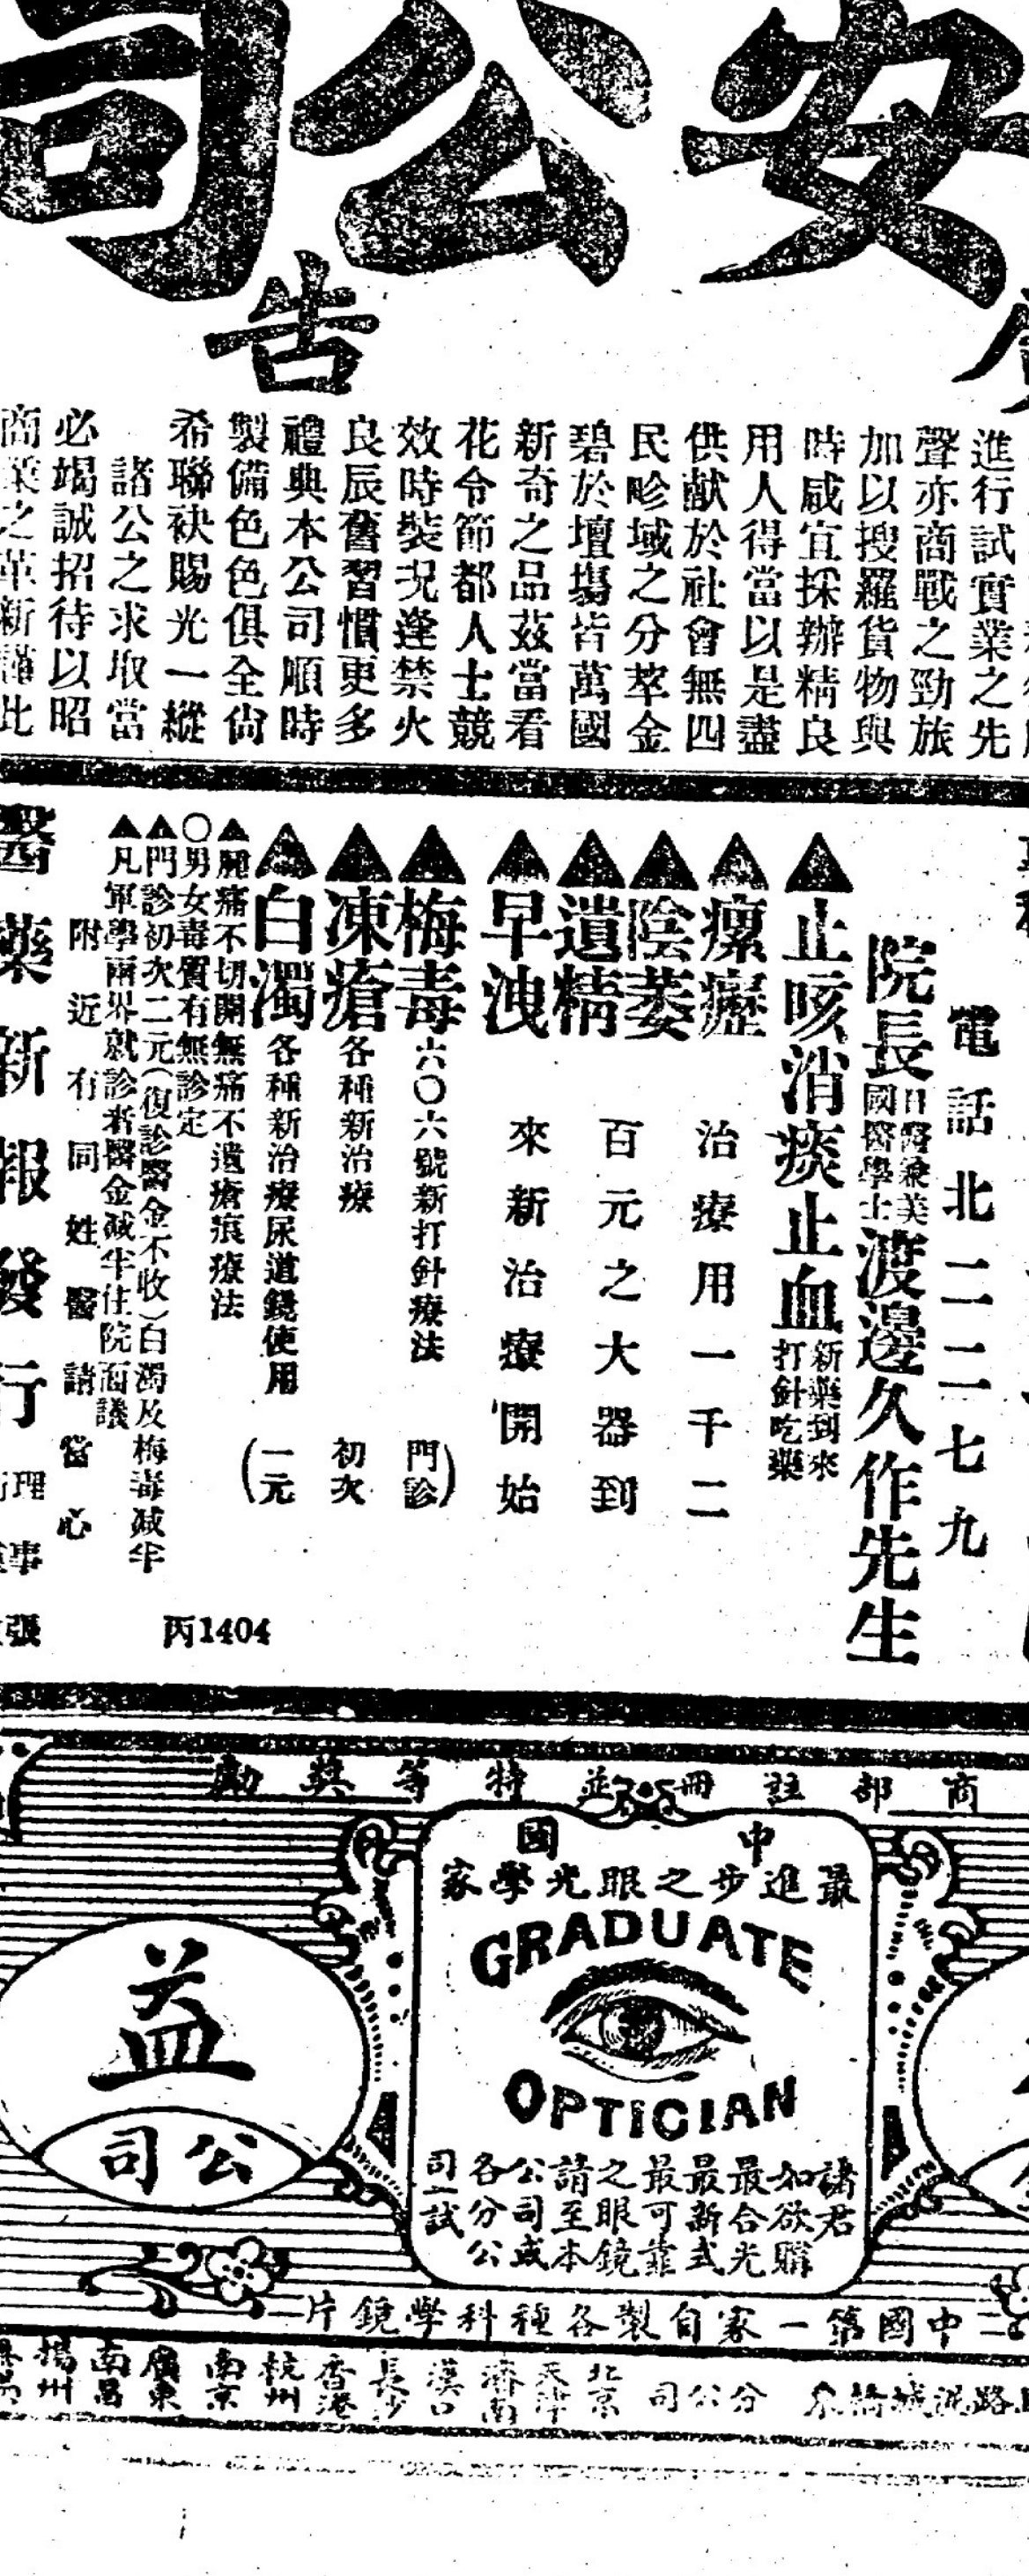 安公司
告
進行試實業之先
聲亦商戰之勁旅
加以搜羅貨物與
時咸宜採辦精良
用人得當以是盡
供献於社會無四
民畛域之分萃金
碧於壇塲皆萬國
新奇之品茲當看
花令節都人士競
效時裝况逢禁火
良辰舊習慣更多
禮典本公司順時
製備色色俱全尙
希聯袂賜光一縱
諸公之求取當
必竭誠招待以昭
商業之革新謹此
電話北二二七九
院長日醫兼美國醫學士渡邊久作先生
▲止咳消痰止血新藥到來打針吃藥
▲瘰癧 治療用一千二
▲陰萎
▲遺精 百元之大器到
▲早洩 來新治療開始
▲梅毒六〇六號新打針療法 (門診
▲凍瘡各種新治療 初次
▲白濁各種新治療尿道鏡使用 一元)
痛不切開無痛不遺瘡痕療法
〇男女毒質有無診定
▲門診初次二元(復診醫金不收)白濁及梅毒减半
▲凡軍學兩界就診者醫金减半住院面議
附近有同姓醫請當心
醫藥新報發行
理事
張
丙1404
商部註冊並特等獎勵
中國
最進步之眼光學家
GRADUATE
OPTICIAN
諸君
如欲購
最合光
最新式
最可靠
之眼鏡
請至本
公司或
各分公
司一試
益
公司
中國第一家自製各種科學鏡片
分公司 北京 天津 濟南 漢口 長沙 香港 杭州 南京 廣東 南昌 揚州